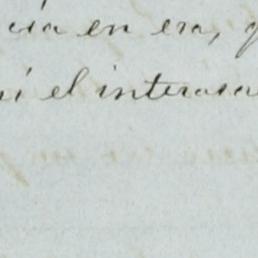 cia en era,
el interesa